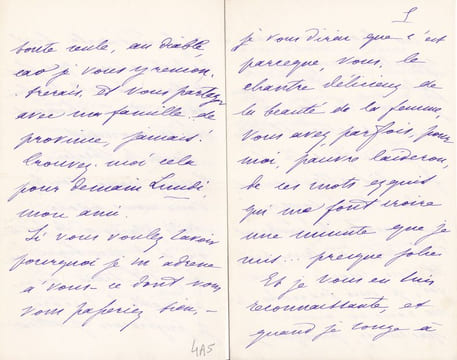 toute seule, au diable,
car je vous y rencon-
trerais. Et vous partagez
avec ma famille de
province, jamais!
Trouvez-moi cela
pour demain Lundi
mon ami.
Si vous voulez savoir
pourquoi je m'adresse
à vous - ce dont vous
vous passeriez bien, -
4A5
je vous dirai que c'est
parceque, vous, le
chantre délicieux de
la beauté de la femme,
vous avez, parfois, pour
moi, pauvre laideron,
de ces mots exquis
qui me font croire
une minute que je
suis... presque jolie
Et je vous en suis
reconnaissante, et
quand je songe à